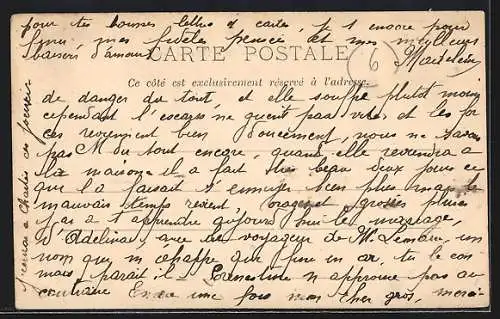 pour tes bonnes lettres et cartes, je t'envoie pour
finir, mes fidèles pensées et mes meilleurs
baisers d'amour
Madeleine
CARTE POSTALE
6
Ce côté est exclusivement réservé à l'adresse
de danger du tout, et elle souffre plutôt moins
cependant l'escares ne guérit pas vite et les forces
reviennent bien doucement, nous ne savons
pas du tout encore, quand elle reviendra à
la maison il a fait très beau deux jours ce
que l'a faisait s'ennuyer bien plus mais le
mauvais temps revient, orages et grosses pluies
j'ai à t'apprendre aujourd'hui le mariage,
d'Adelina, avec le voyageur de Mr. un
nom qui m'échappe qui finit en tu le con
mais parait-il Ernestine n'approuve pas au
contraire Encore une fois mon cher gros, merci